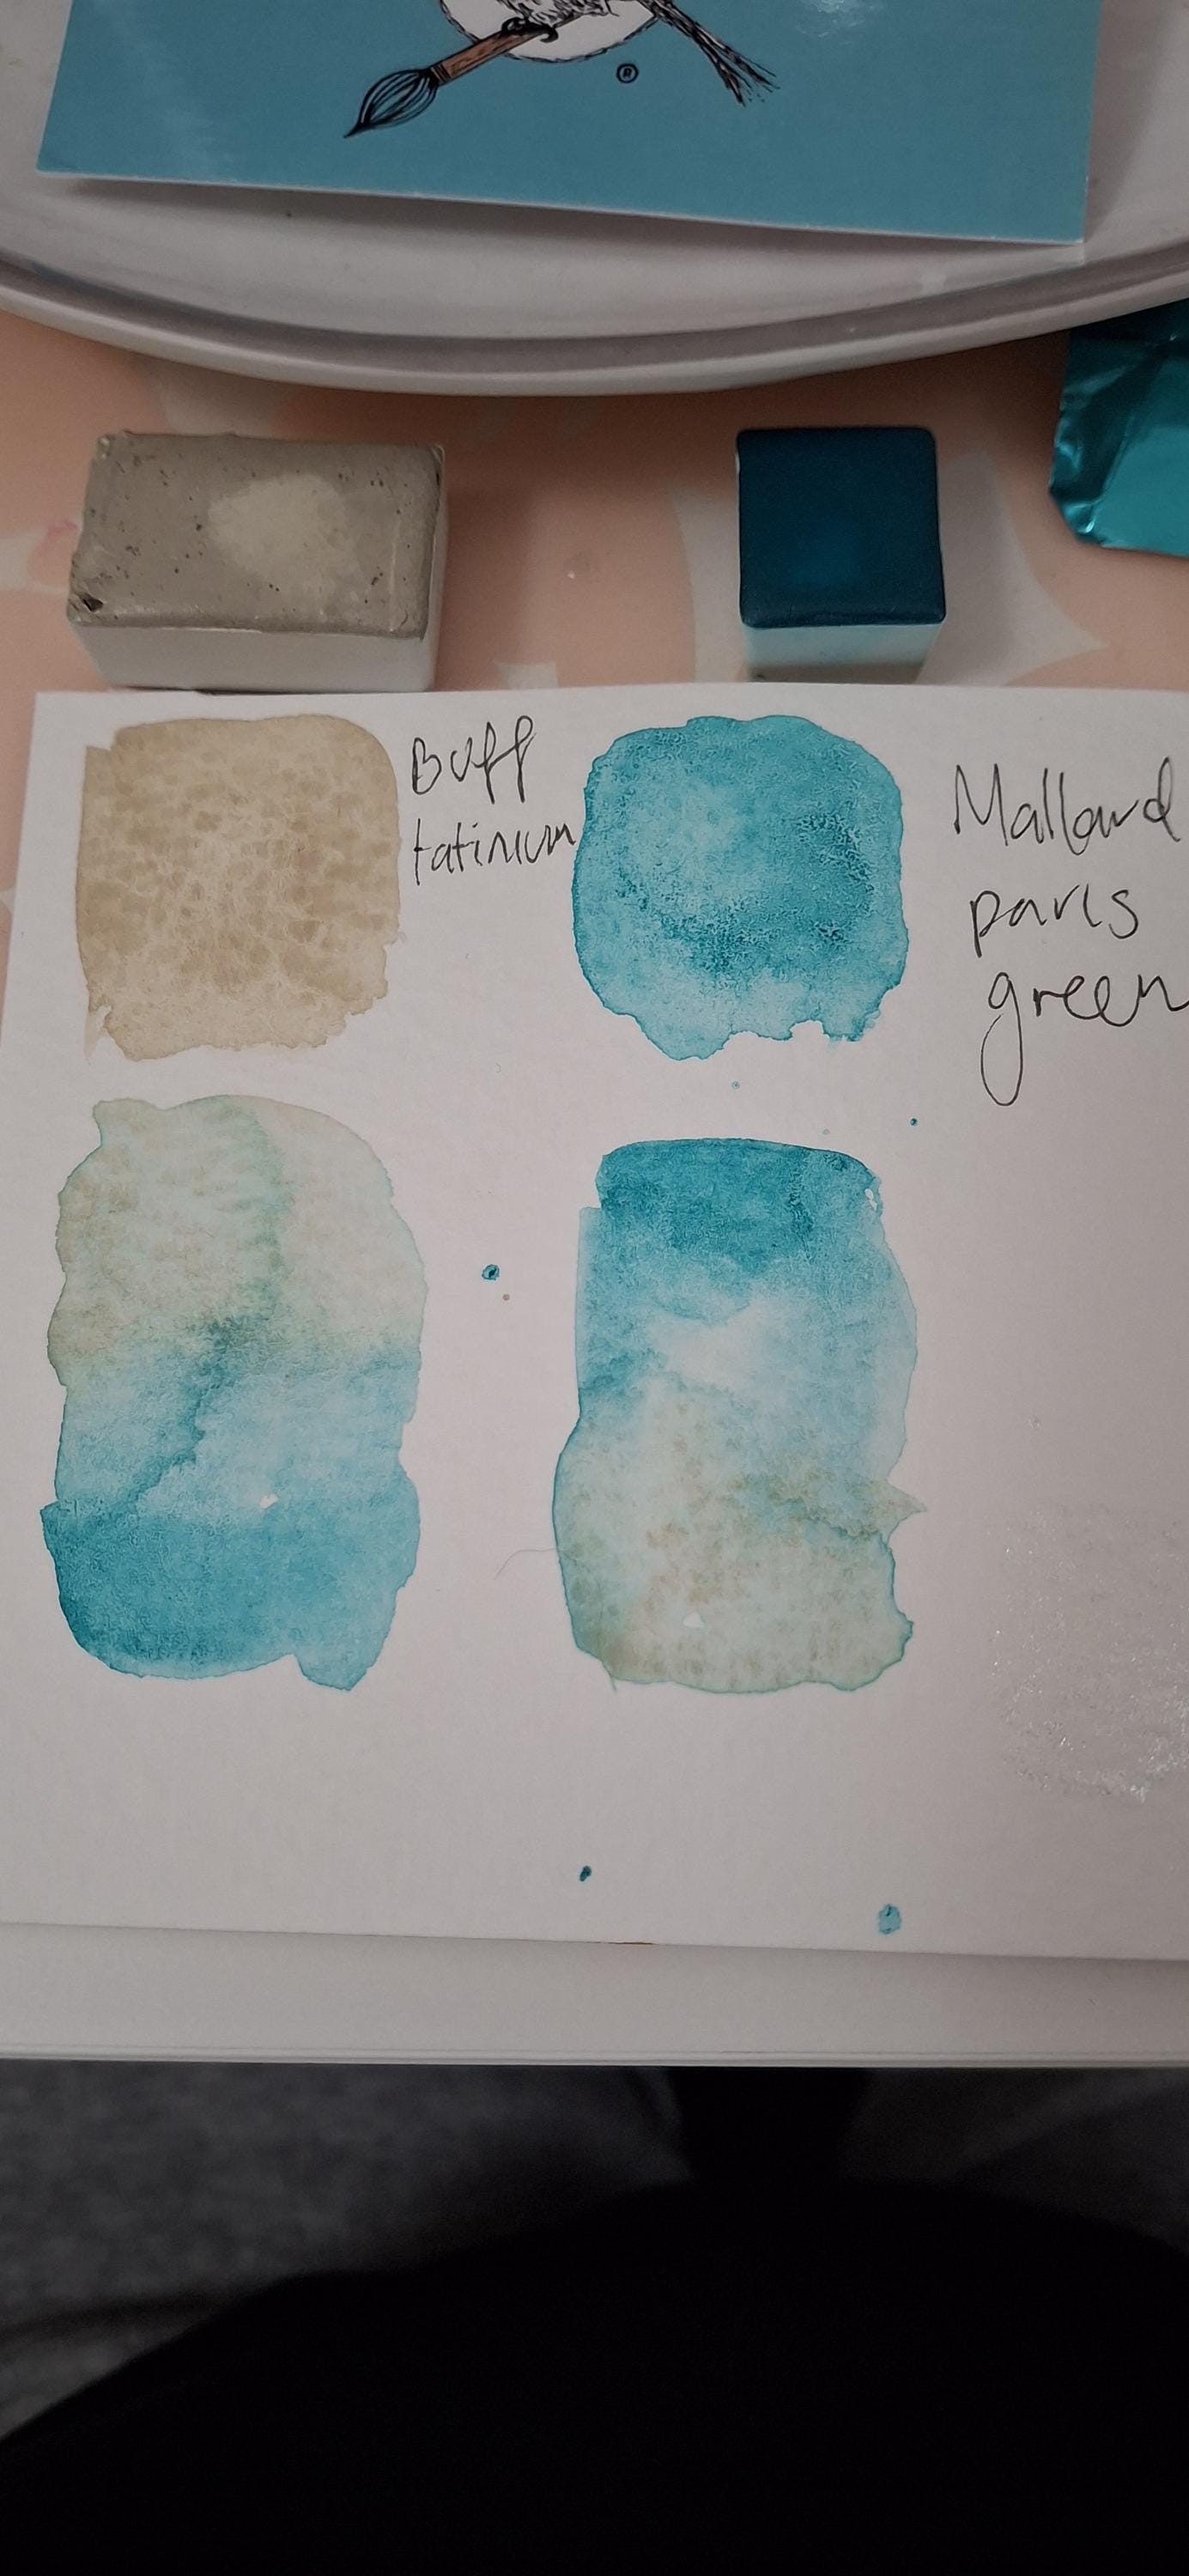 ®
Buff
tatinium
Mallard
paris
green